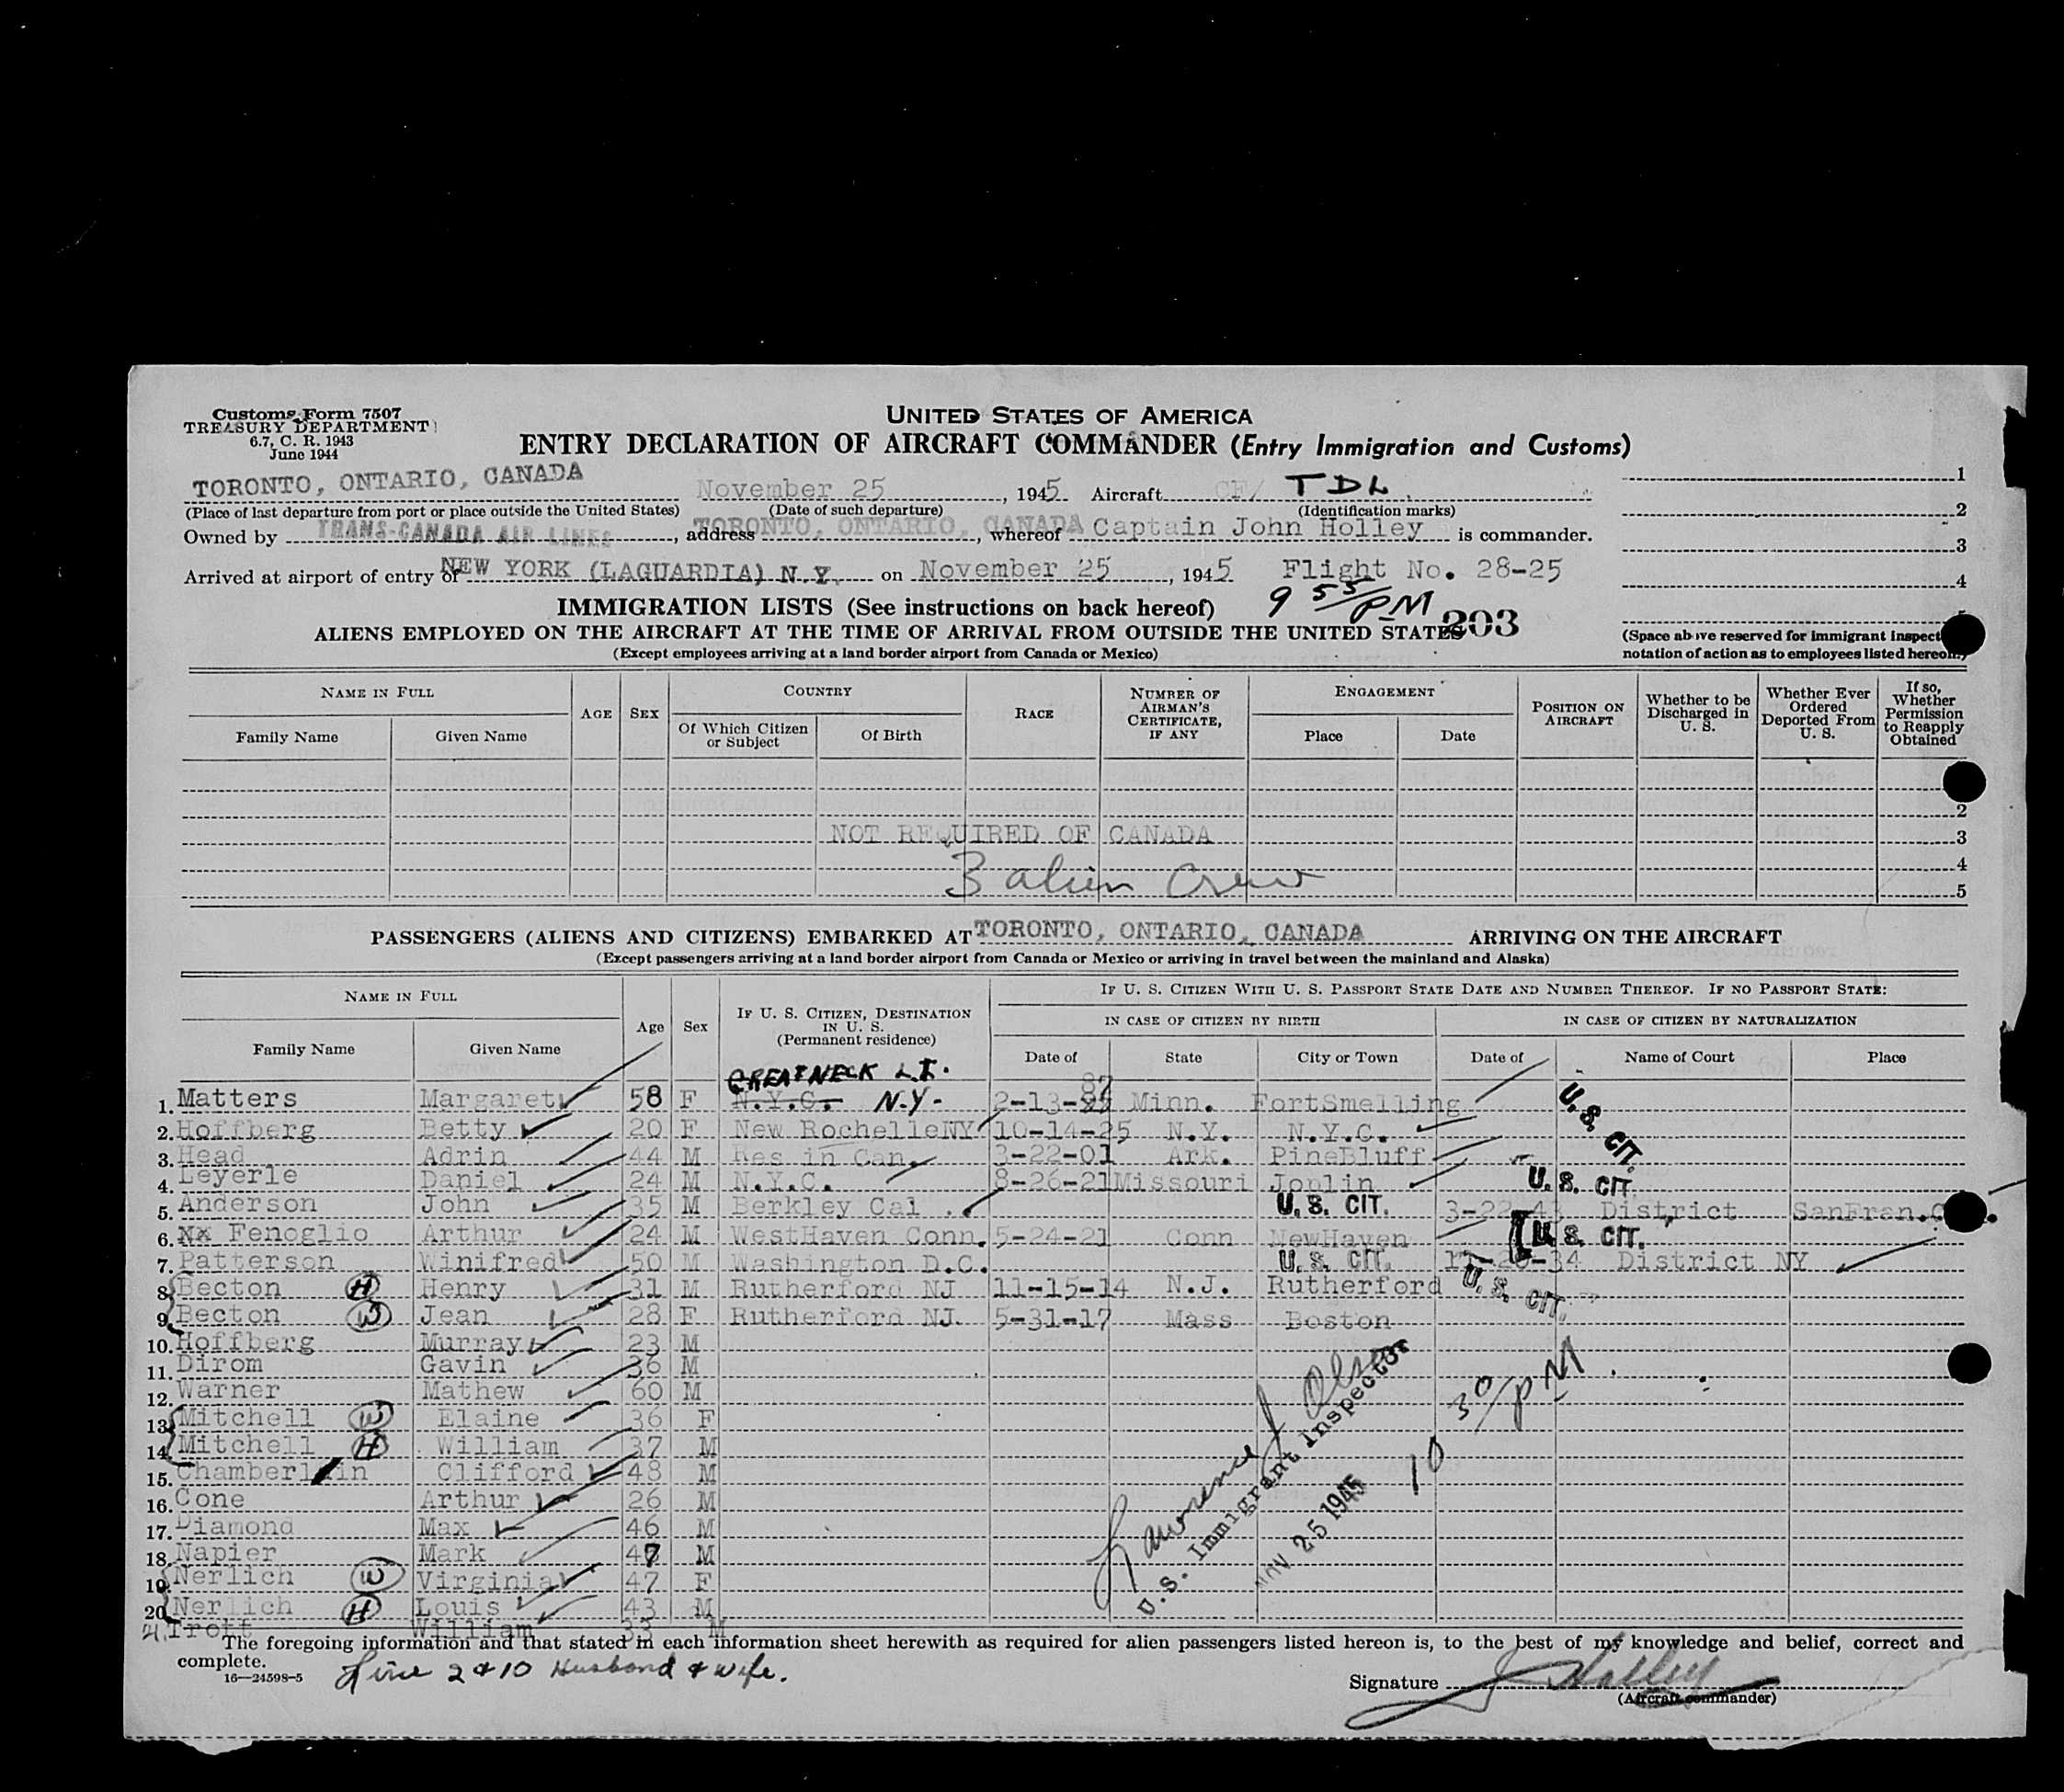 Customs Form 7507
TREASURY DEPARTMENT
6.7, C. R. 1943
June 1944
UNITED STATES OF AMERICA
ENTRY DECLARATION OF AIRCRAFT COMMANDER (Entry Immigration and Customs)
TORONTO, ONTARIO, CANADA November 25, 1945 Aircraft CF/ TDL
(Place of last departure from port or place outside the United States) (Date of such departure) (Identification marks)
Owned by TRANS-CANADA AIR LINES, address TORONTO, ONTARIO, CANADA, whereof Captain John Holley is commander.
Arrived at airport of entry of NEW YORK (LAGUARDIA) N.Y. on November 25, 1945 Flight No. 28-25
1
2
3
4
IMMIGRATION LISTS (See instructions on back hereof) 9 55/PM 203
ALIENS EMPLOYED ON THE AIRCRAFT AT THE TIME OF ARRIVAL FROM OUTSIDE THE UNITED STATES
(Except employees arriving at a land border airport from Canada or Mexico)
(Space above reserved for immigrant inspect
notation of action as to employees listed hereon.)
NAME IN FULL AGE SEX COUNTRY RACE NUMBER OF AIRMAN'S CERTIFICATE, IF ANY ENGAGEMENT POSITION ON AIRCRAFT Whether to be Discharged in U. S. Whether Ever Ordered Deported From U. S. If so, Whether Permission to Reapply Obtained
Family Name Given Name Of Which Citizen or Subject Of Birth Place Date
2
NOT REQUIRED OF CANADA 3
3 alien Crew 4
5
PASSENGERS (ALIENS AND CITIZENS) EMBARKED AT TORONTO, ONTARIO, CANADA ARRIVING ON THE AIRCRAFT
(Except passengers arriving at a land border airport from Canada or Mexico or arriving in travel between the mainland and Alaska)
NAME IN FULL Age Sex IF U. S. CITIZEN, DESTINATION IN U. S. (Permanent residence) IF U. S. CITIZEN WITH U. S. PASSPORT STATE DATE AND NUMBER THEREOF. IF NO PASSPORT STATE:
IN CASE OF CITIZEN BY BIRTH IN CASE OF CITIZEN BY NATURALIZATION
Family Name Given Name Date of State City or Town Date of Name of Court Place
GREAT NECK L.I.
1. Matters Margaret 58 F N.Y.C. N.Y. 2-13-87 Minn. FortSmelling U.S. CIT.
2. Hoffberg Betty 20 F New RochelleNY 10-14-25 N.Y. N.Y.C.
3. Head Adrin 44 M Res in Can. 3-22-01 Ark. PineBluff
4. Leyerle Daniel 24 M N.Y.C. 8-26-21 Missouri Joplin U.S. CIT.
5. Anderson John 35 M Berkley Cal. U.S. CIT. 3-22-43 District SanFran.
6. Nx Fenoglio Arthur 24 M WestHaven Conn. 5-24-21 Conn NewHaven U.S. CIT.
7. Patterson Winifred 50 M Washington D.C. U.S. CIT. District NY
8. Becton H Henry 31 M Rutherford NJ 11-15-14 N.J. Rutherford U.S. CIT.
9. Becton W Jean 28 F Rutherford NJ 5-31-17 Mass Boston
10. Hoffberg Murray 23 M
11. Dirom Gavin 36 M
12. Warner Mathew 60 M
13. Mitchell W Elaine 36 F
14. Mitchell H William 37 M
15. Chamberlain Clifford 48 M
16. Cone Arthur 26 M
17. Diamond Max 46 M
18. Napier Mark 47 M
19. Nerlich W Virginia 47 F
20. Nerlich H Louis 43 M
21. Trott William 33 M
Lawrence J Olsen
U.S. Immigrant Inspector
NOV 25 1945
10 30/PM
The foregoing information and that stated in each information sheet herewith as required for alien passengers listed hereon is, to the best of my knowledge and belief, correct and
complete.
16—24598-5 Line 2 & 10 Husband & wife.
Signature J Holley
(Aircraft commander)